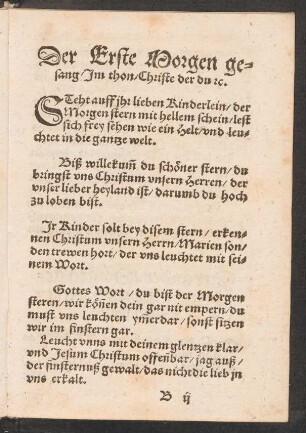 Der Erste Morgen ge-
sang/Im thon/Christe der du ꝛc.
STeht auff jhr lieben Kinderlein/der
Morgen stern mit hellem schein/lest
sich frey sehen wie ein Helt/vnd leu-
chtet in die gantze welt.
Biß willekum̃ du schöner stern/du
bringst vns Christum vnsern Herren/der
vnser lieber heyland ist/darumb du hoch
zu loben bist.
Ir Kinder solt bey disem stern/erken-
nen Christum vnsern Herrn/Marien son/
den trewen hort/der vns leuchtet mit sei-
nem Wort.
Gottes Wort/du bist der Morgen
steren/wir kön̄en dein gar nit empern/du
must vns leuchten ymerdar/sonst sitzen
wir im finstern gar.
Leucht vnns mit deinem glentzen klar/
vnd Jesum Christum offenbar/jag auß/
der finsternuß gewalt/das nicht die lieb in
vns erkalt.
B ij